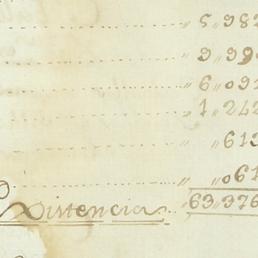 " 5,982
" 9,990
" 6,09
" 1,242
" 613
" 061
Existencia.. " 63,976